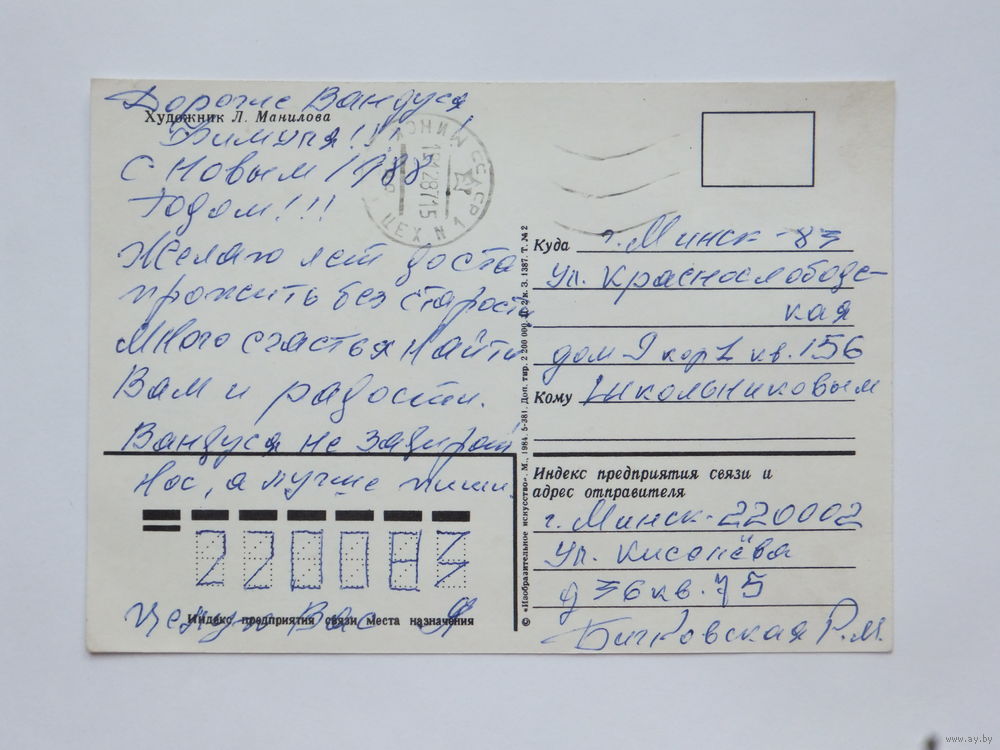 Дорогие Вандуся
Художник Л. Манилова
Димуля!!!
С Новым 1988
Годом!!!
Желаю лет до ста
прожить без старости
Много счастья найти
Вам и радости.
Вандуся не задирай
нос, а лучше пиши.
220083
Целую Вас Я
Индекс предприятия связи места назначения
МИНСК СССР
18128715
ЦЕХ N 1
© «Изобразительное искусство». М., 1984. 5-381. Доп. тир. 2 200 000. З. 1387. Т. № 2
Куда г. Минск-83
ул. Краснослободс-
кая
дом 9 кор 1 кв. 156
Кому Школьниковым
Индекс предприятия связи и
адрес отправителя
г. Минск-220002
ул. Киселёва
д 36 кв. 75
Бичковская Р.М.
www.ay.by